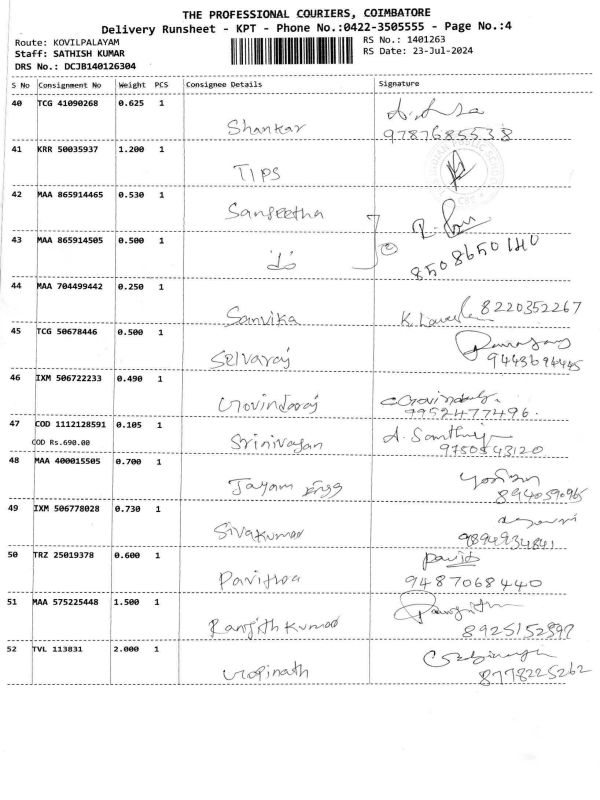 THE PROFESSIONAL COURIERS, COIMBATORE
Delivery Runsheet - KPT - Phone No.:0422-3505555 - Page No.:4
Route: KOVILPALAYAM RS No.: 1401263
Staff: SATHISH KUMAR RS Date: 23-Jul-2024
DRS No.: DCJB140126304
S No Consignment No Weight PCS Consignee Details Signature
40 TCG 41090268 0.625 1
Shankar 9787685538
41 KRR 50035937 1.200 1
TIPS
42 MAA 865914465 0.530 1
Sangeetha
43 MAA 865914505 0.500 1
8508650140
44 MAA 704499442 0.250 1
Sanvika 8220352267
45 TCG 50678446 0.500 1
Selvaraj 9443694445
46 IXM 506722233 0.490 1
Govindaraj 9952477496.
47 COD 1112128591 0.105 1
COD Rs.690.00 Srinivasan 9750543120
48 MAA 400015505 0.700 1
Jayam Engg 8940590965
49 IXM 506778028 0.730 1
Sivakumar 9894934841
50 TRZ 25019378 0.600 1
Pavithra 9487068440
51 MAA 575225448 1.500 1
Ranjith Kumar 8925152897
52 TVL 113831 2.000 1
Gopinath 8778225262